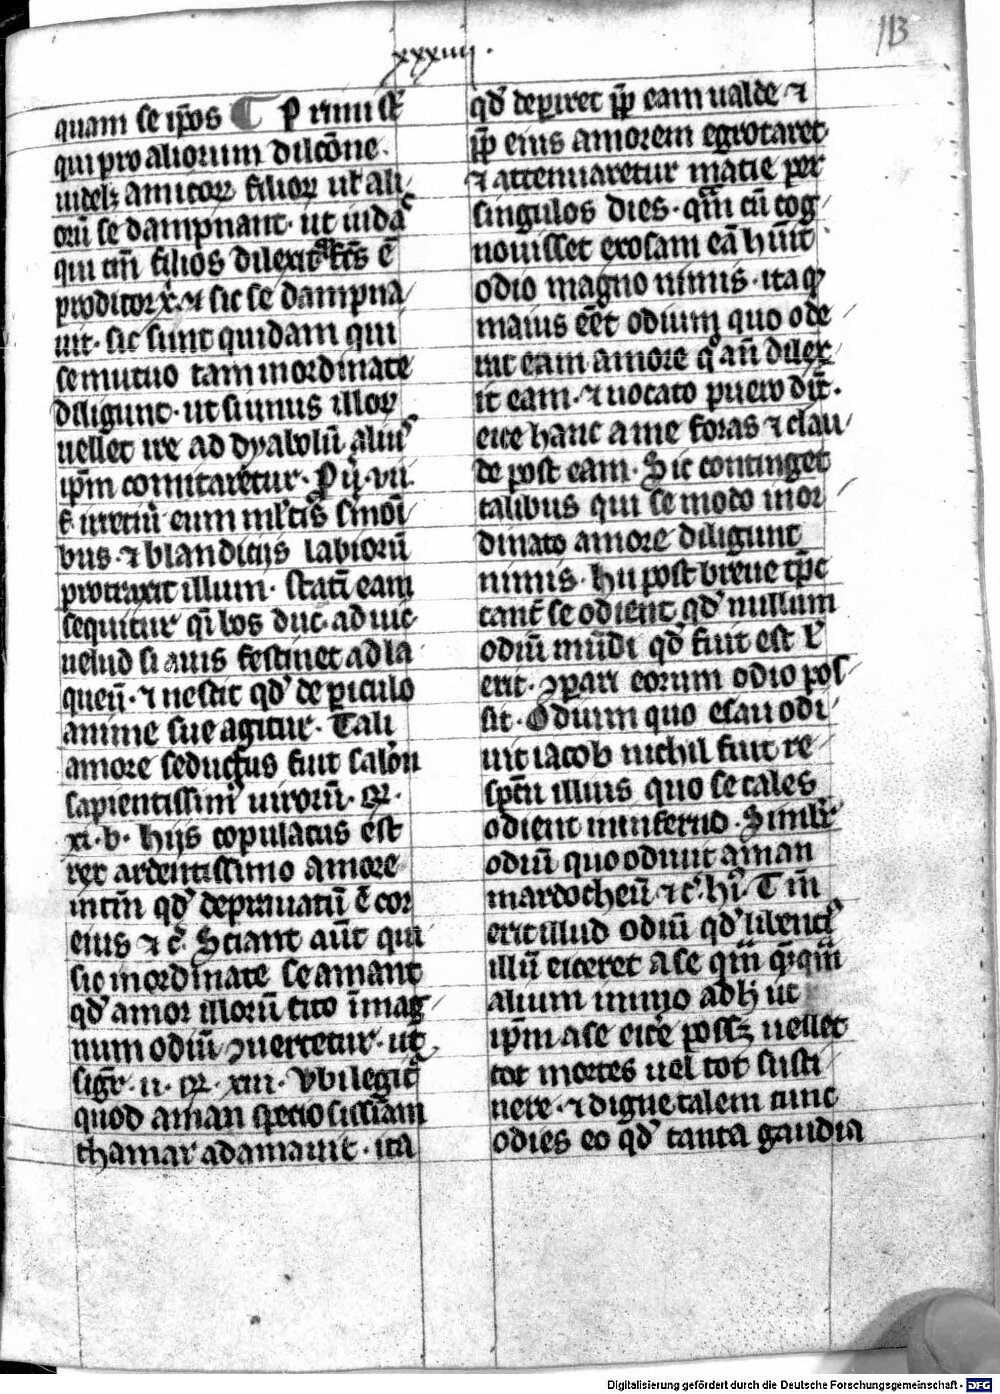 xxxiiij.
113
quam se ip̅os ¶ Primi s̅t
qui pro aliorum dilc̅one.
uidelꝫ amicoꝝ filioꝝ uł ali
oru̅ se dampnant. ut iuda
qui tm̅ filios dilexit
proditor xͥ. ⁊ sic se dampna
uit. sic sunt quidam qui
se mutuo tam inordinate
diligunt. ut si unus illoꝝ
uellet ire ad dyabolu̅ aliuˢ
ip̅m comitaretur. P̲ũ. vii.
irretiu̅ eum ml̅tis smoi̅
bus. ⁊ blandicijs labioru̅
protraxit illum. stati̅ eam
sequitur q̅i bos duc̅. ad uic̅
uelud si auis festinet ad la
queu̅. ⁊ nescit qd̓ de ꝑiculo
anime sue agitur. Tali
amore seductus fuit salo̅n
sapientissim̓ uiroru̅. Rͤ.
xi. b. hijs copulatus est
rex ardentissimo amore
intm̅ qd̓ deprauatu̅ e̅ cor
eius ⁊ c̅. Sciant aut̅ qui
sic inordinate se amant
qd̓ amor illoru̅ cito i̅ mag
num odiu̅ ꝯuertetur. ut
sigͬ. ii. Rͤ. xiii. Vbi legit̅
quod aman specio sissi̅am
thamar adamauit. ita
qd̓ deꝑiret ꝓp̅ eam ualde ⁊
ꝓp̅ eius amorem egrotaret
⁊ attenuaretur macie per
singulos dies. qm̅ cu̅ cog
nouisset exosam ea̅ hu̅it
odio magno nimis. ita qͩ
maius ee̅t odium quo ode
rat eam amore q̊ an̅ dilex
it eam. ⁊ uocato puero dix̅.
eice hanc a me foras ⁊ clau
de post eam. Sic continget
talibus qui se modo inor
dinato amore diligunt
nimis. hii post breue tp̅c
tant̅ se odient. qd̓ nullum
odiu̅ mu̅di qd̓ fuit est uł
erit. ꝯꝑari eorum odio pos
sit. Odium quo esau odi
uit iacob nichil fuit re
spc̅u illius quo se tales
odient in inferno. Simlr̅
odiu̅ quo odiuit aman
mardocheu̅ ⁊ c̅. hͥ. Tm̅
erit illud odiu̅ qd̓ libenciˢ
illu̅ eiceret a se qm̅ q̅cqm̅
alium immo adh̓ ut
ip̅m a se eice̅ possꝫ uellet
tot mortes uel tot susti
nere. ⁊ digne talem tunc
odies eo qd̓ tanta gaudia
Digitalisierung gefördert durch die Deutsche Forschungsgemeinschaft - DFG